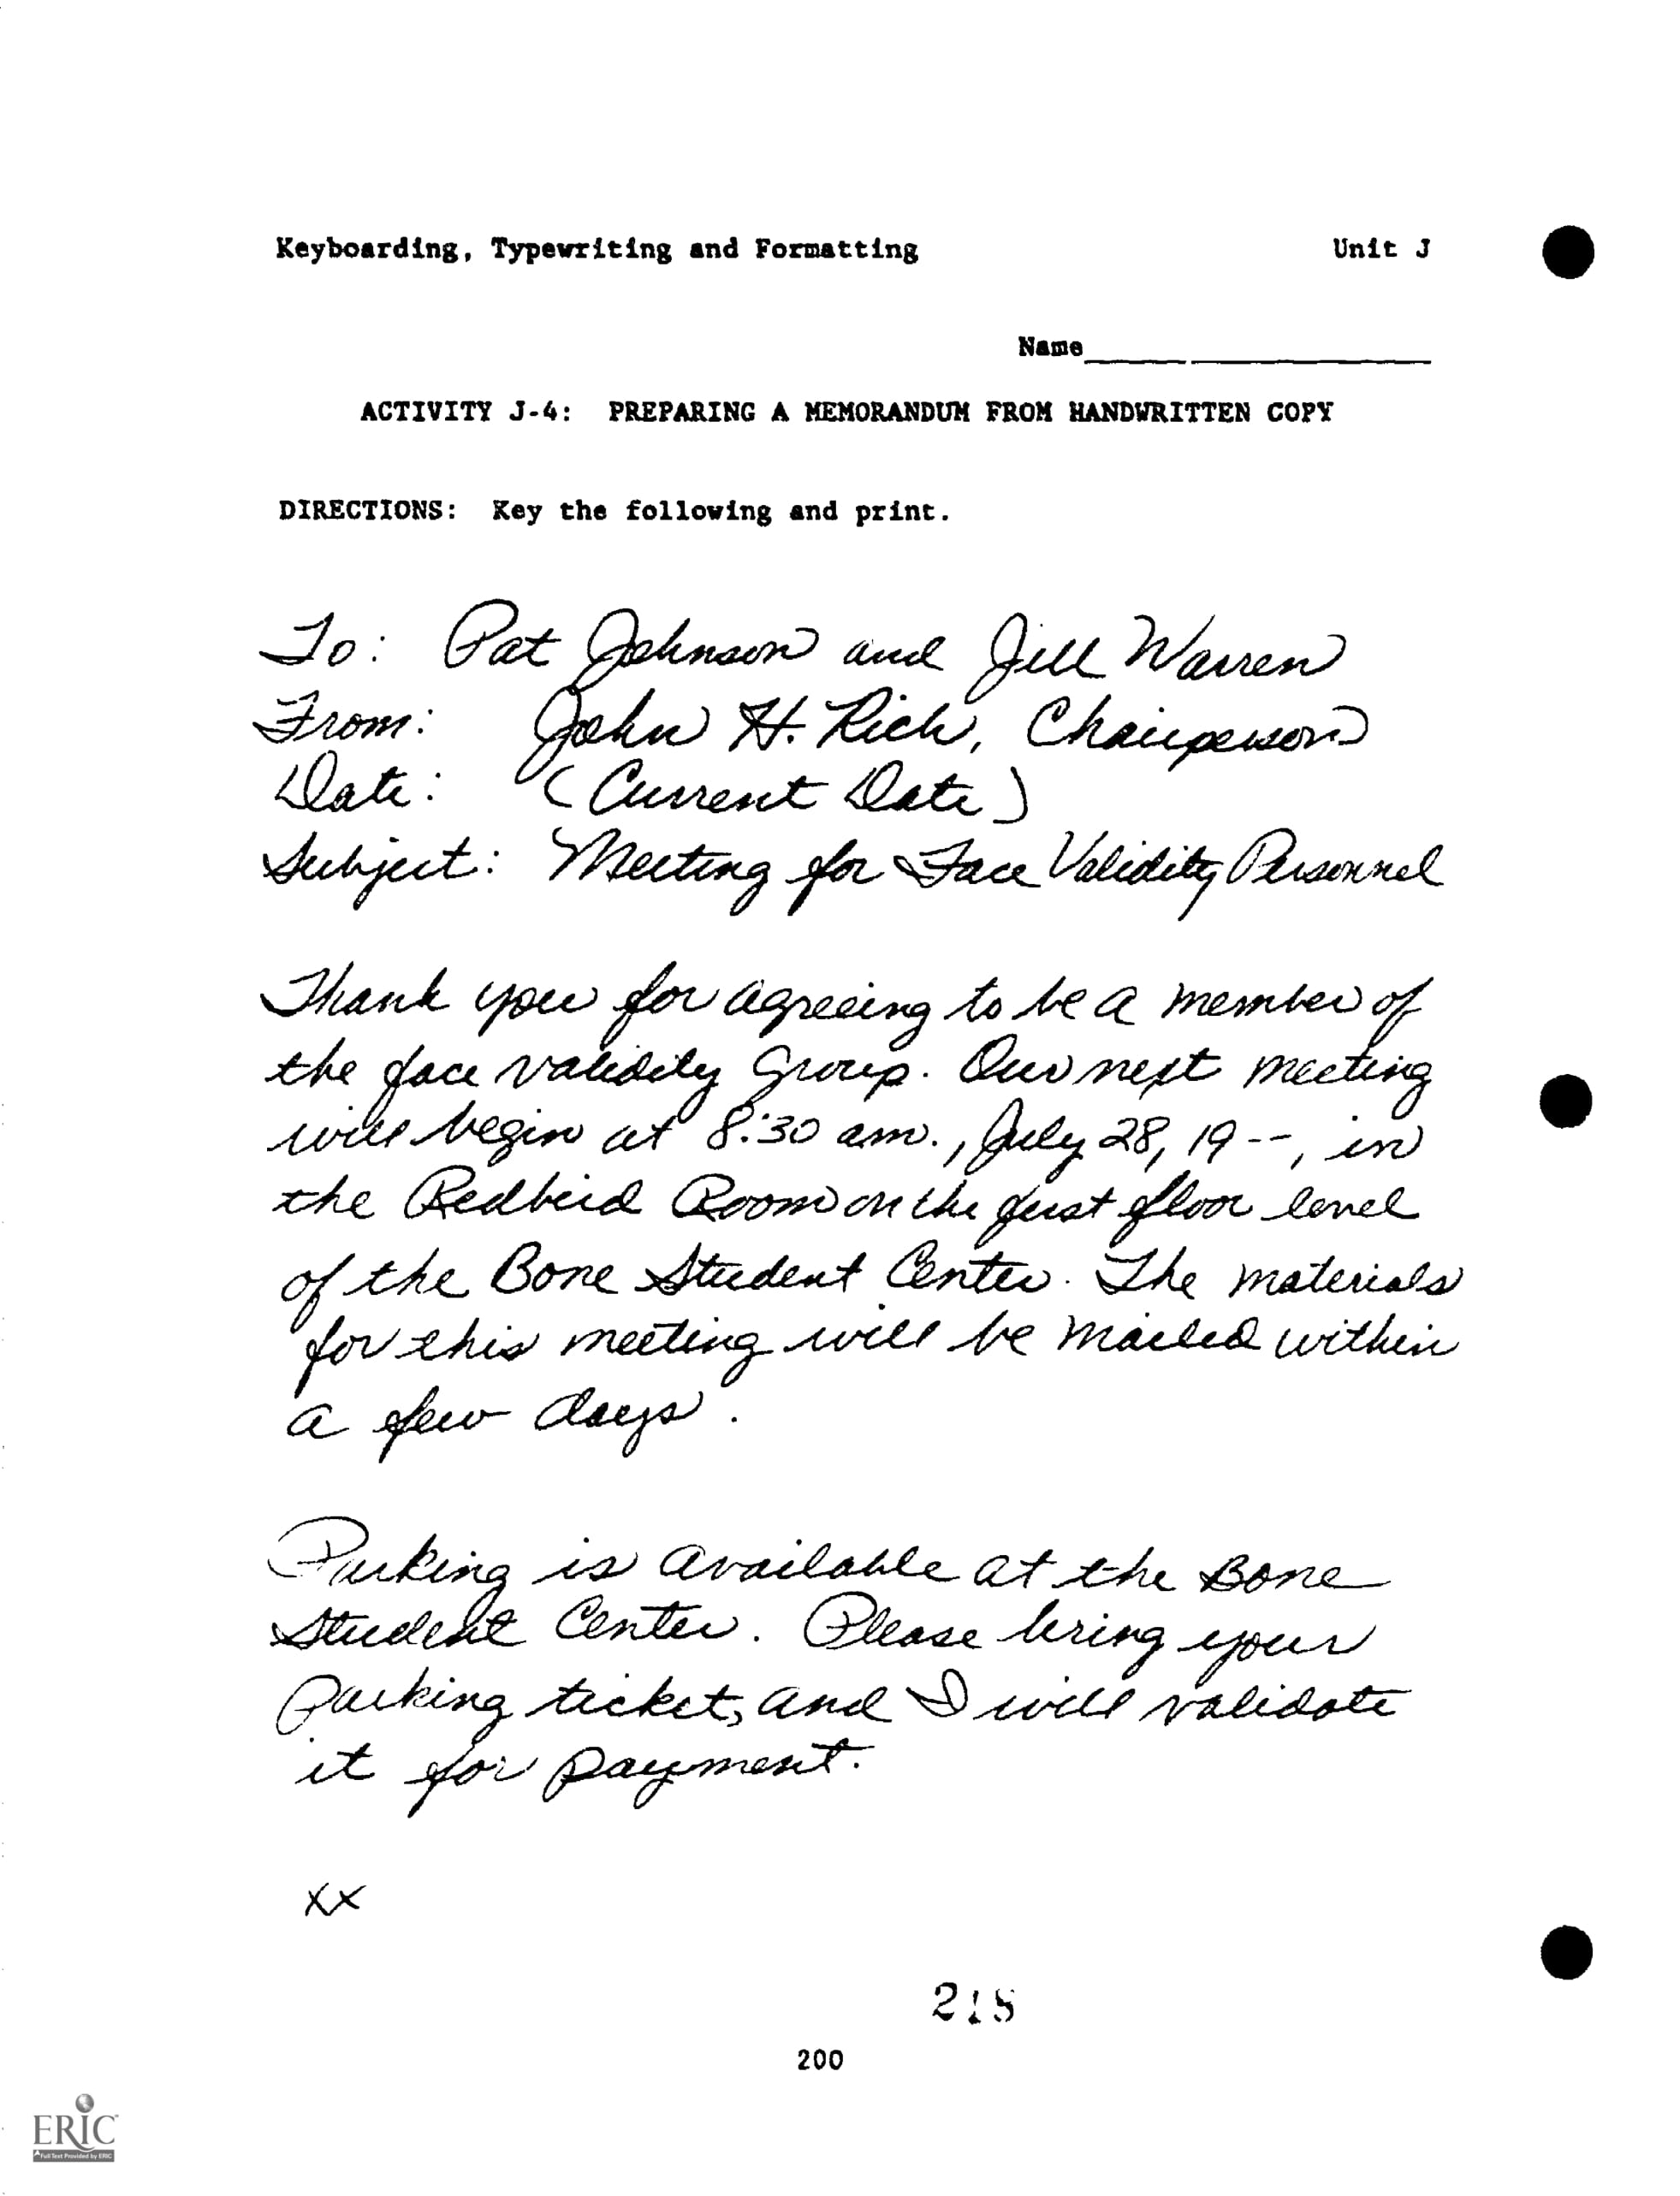 Keyboarding, Typewriting and Formatting Unit J
Name
ACTIVITY J-4: PREPARING A MEMORANDUM FROM HANDWRITTEN COPY
DIRECTIONS: Key the following and print.
To: Pat Johnson and Jill Warren
From: John H. Rich, Chairperson
Date: (Current Date)
Subject: Meeting for Face Validity Personnel
Thank you for agreeing to be a member of
the face validity group. Our next meeting
will begin at 8:30 am., July 28, 19--, in
the Redbird Room on the first floor level
of the Bone Student Center. The materials
for this meeting will be mailed within
a few days.
Parking is available at the Bone
Student Center. Please bring your
parking ticket, and I will validate
it for payment.
xx
218
200
ERIC
Full Text Provided by ERIC